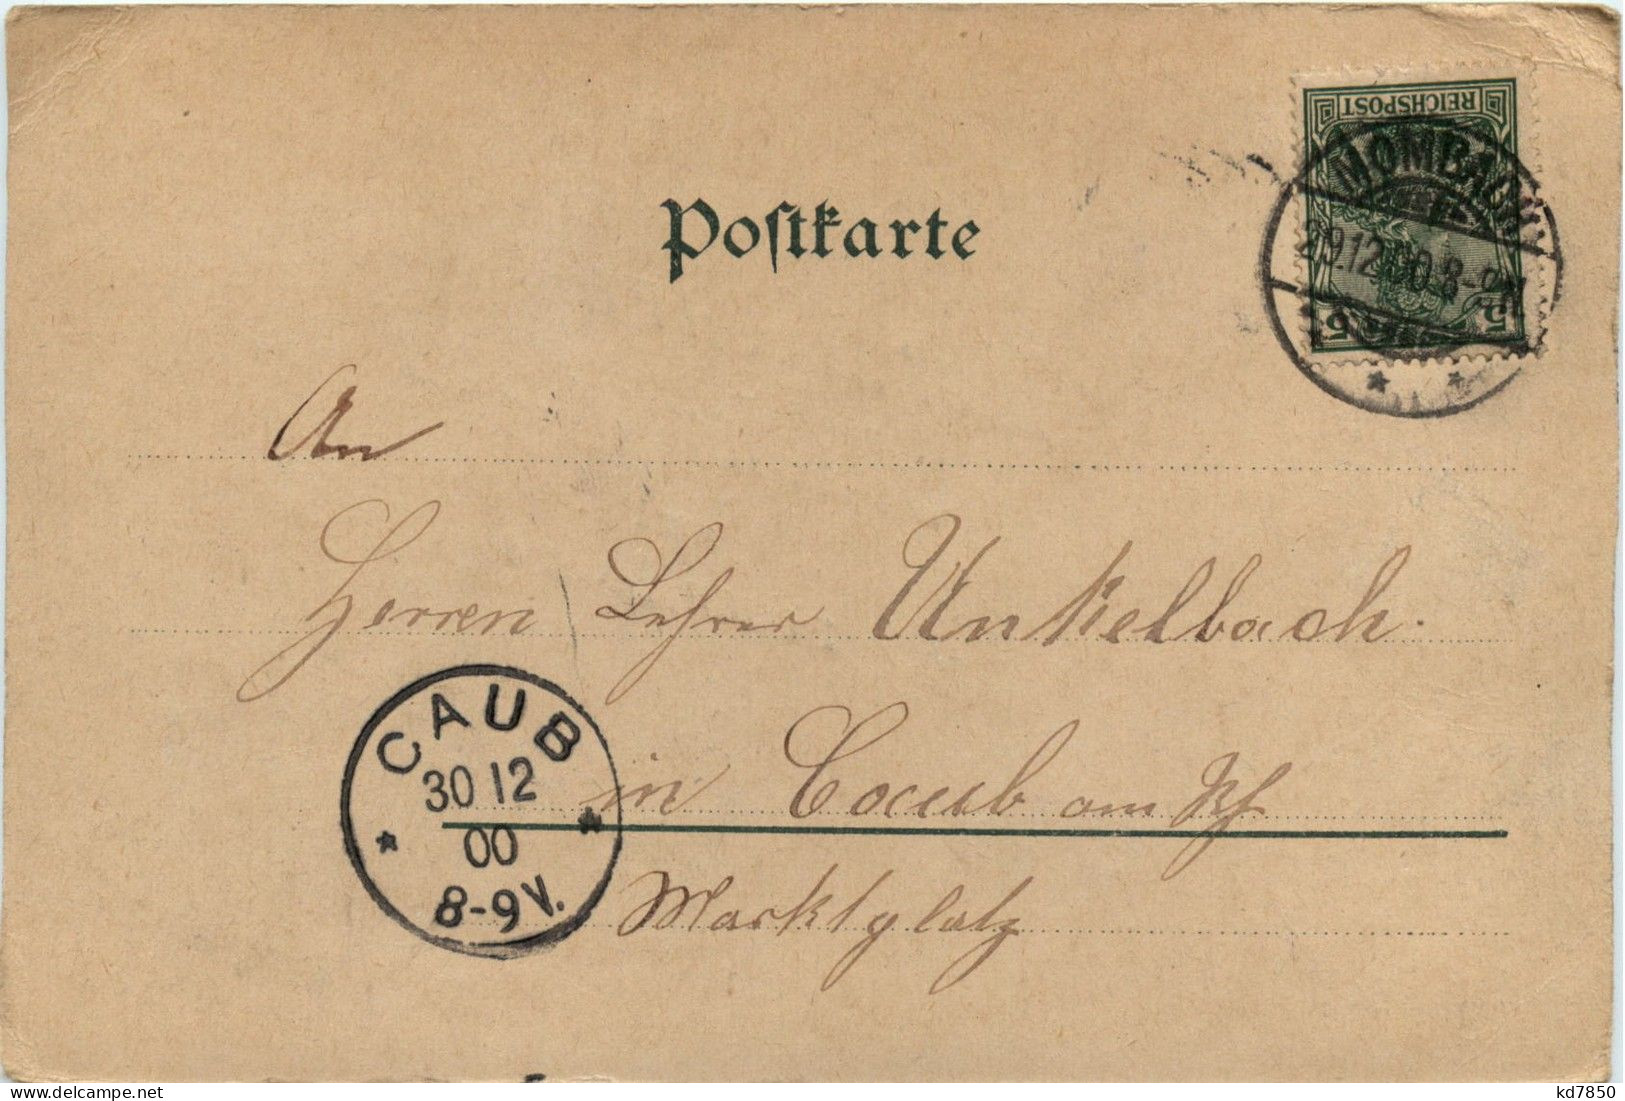 REICHSPOST
MOMBACH
29.12.00.8-9N
5 5
Poſtkarte
An
Herren Lehrer Unkelbach.
in Caub am Rh
Marktplatz
CAUB
30 12
00
8-9 V.
kd7850